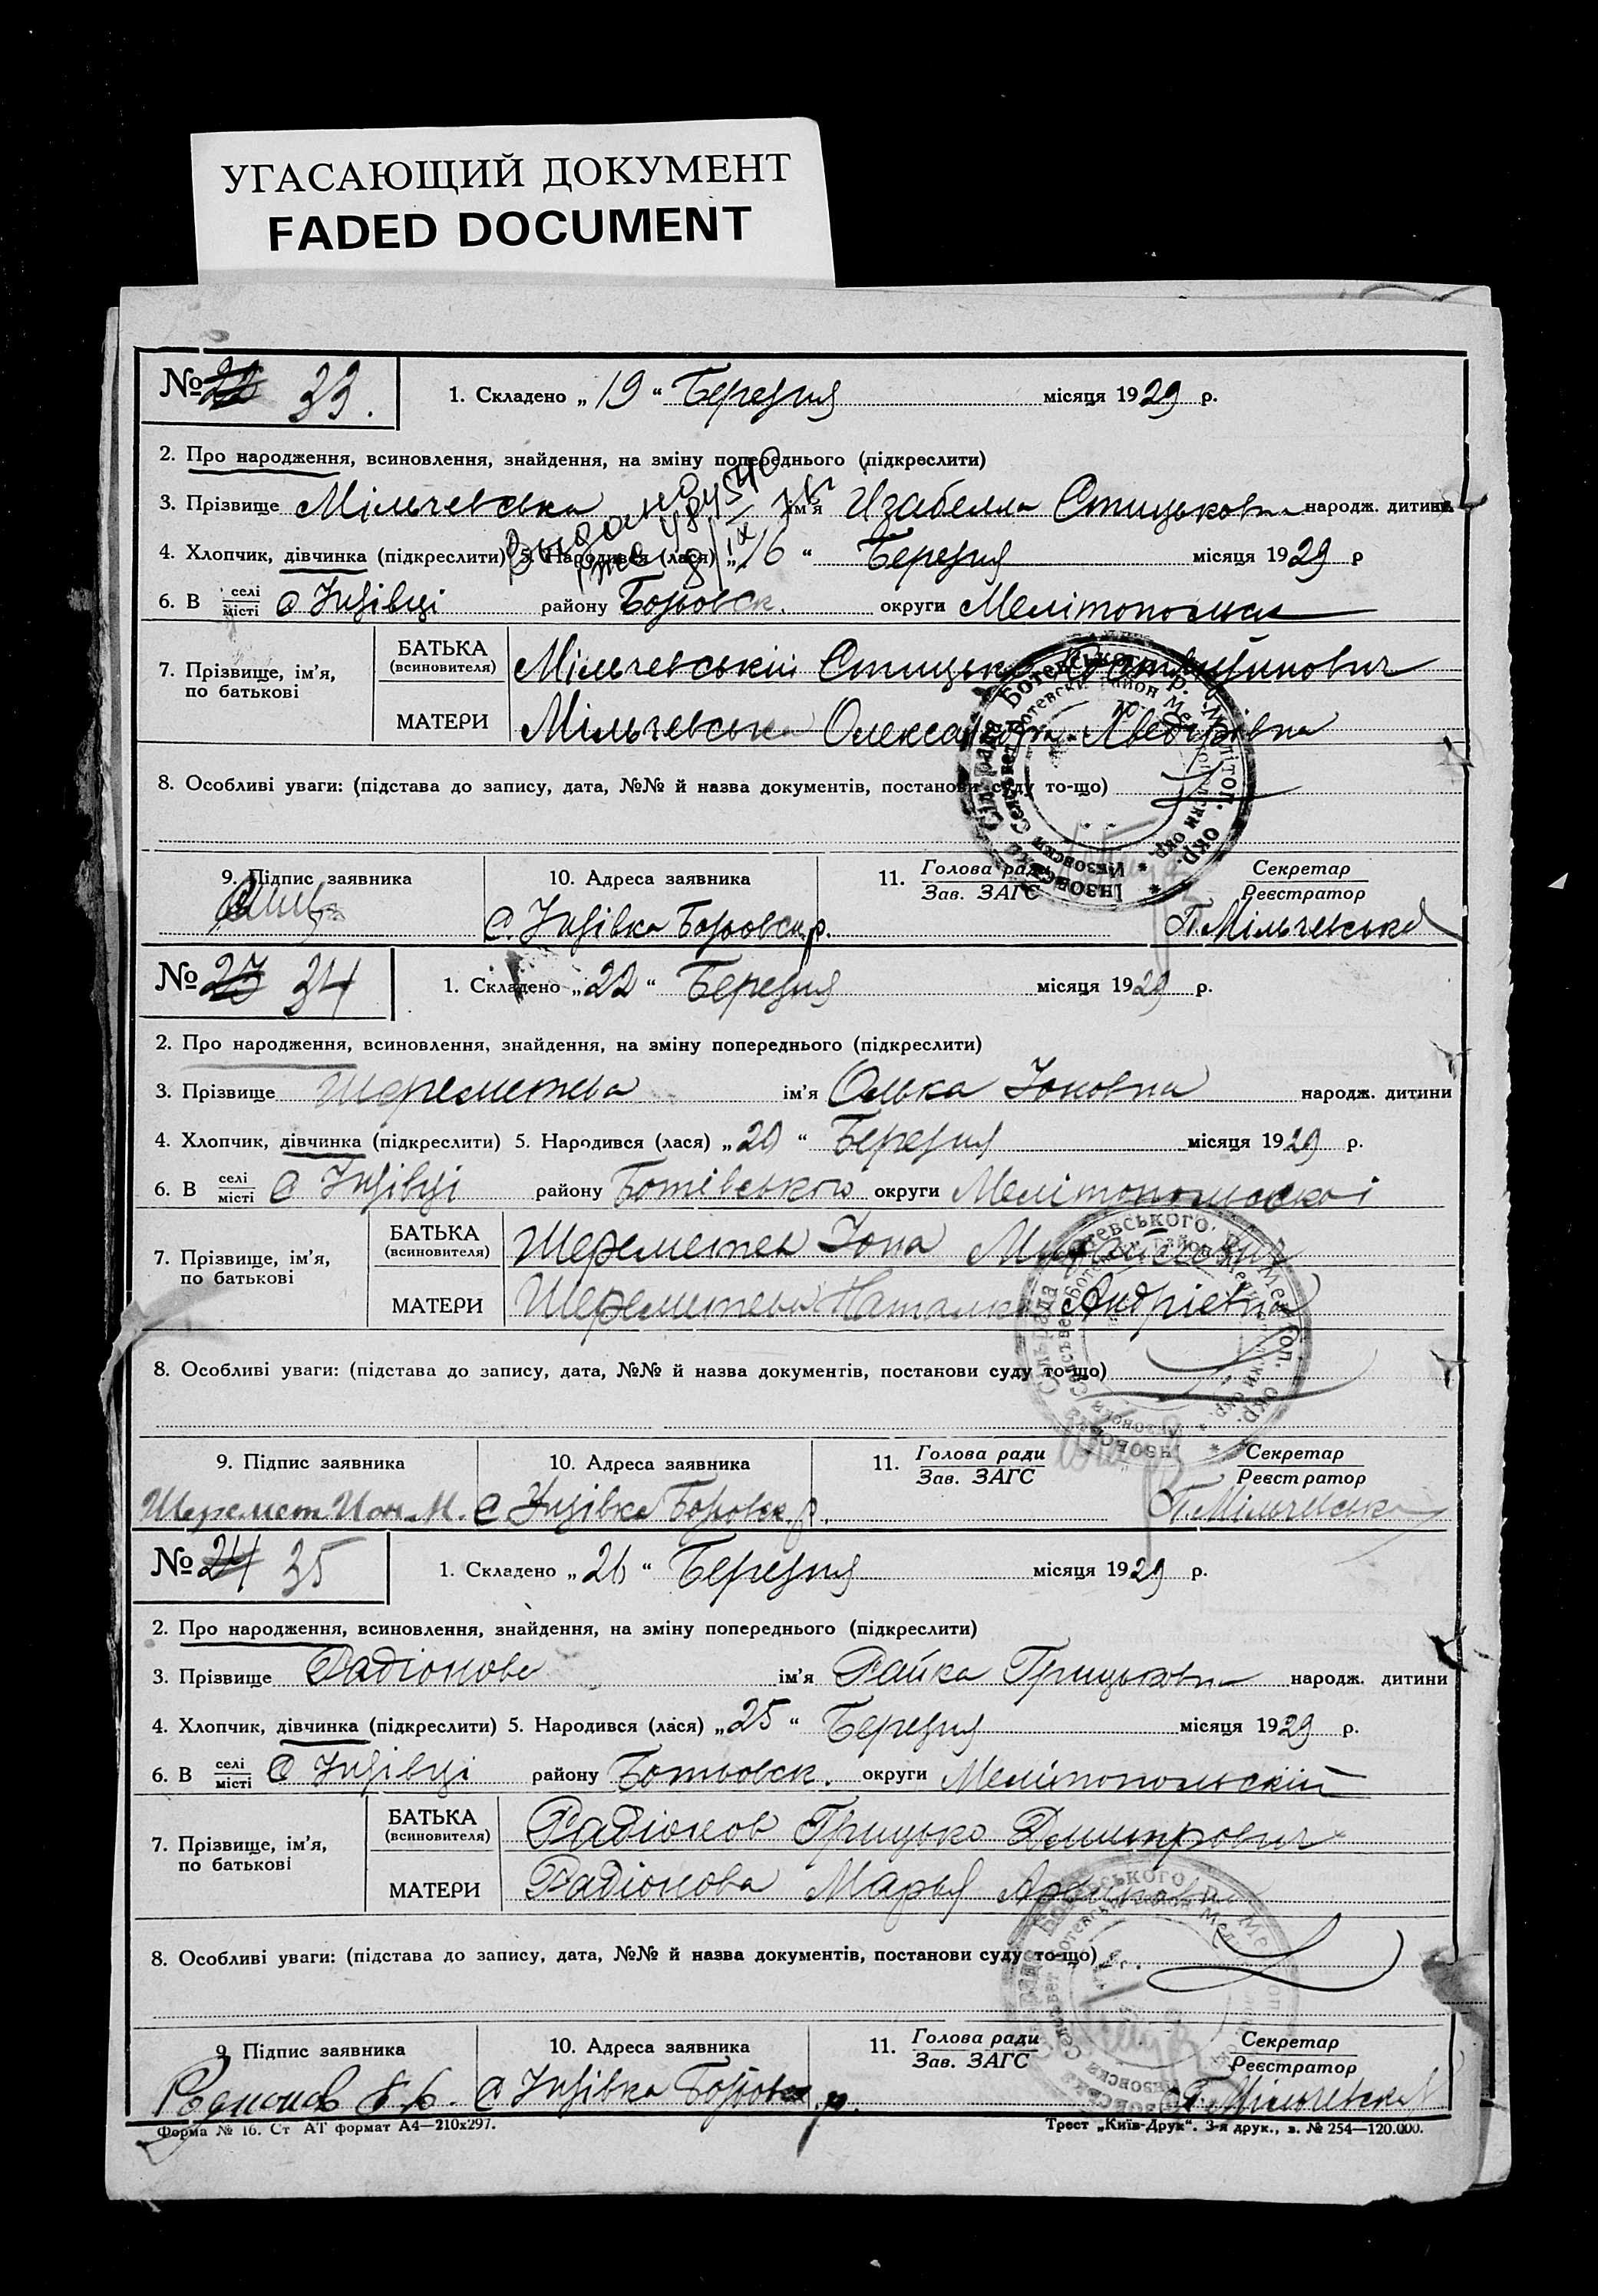 УГАСАЮЩИЙ ДОКУМЕНТ
FADED DOCUMENT
№ 22 33. 1. Складено „19“ Березня місяця 1929 р.
2. Про народження, всиновлення, знайдення, на зміну попереднього (підкреслити)
3. Прізвище Мільчевська ім'я Изабелла Стицьковна народж. дитини
Выдано
4. Хлопчик, дівчинка (підкреслити) 5. Народився (лася) „16“ Березня місяця 1929 р
6. В селі/місті с Інзівці району Ботьовск. округи
7. Прізвище, ім'я, по батькові
БАТЬКА (всиновителя) Мільчевській Стицько
МАТЕРИ Мільчевська Олександра
8. Особливі уваги: (підстава до запису, дата, №№ й назва документів, постанови суду то-що)
9. Підпис заявника 10. Адреса заявника 11. Голова ради/Зав. ЗАГС Секретар/Реєстратор
С. Інзівка Ботьовск. р. П. Мільчевська
№ 23 34 1. Складено „22“ Березня місяця 1929 р.
2. Про народження, всиновлення, знайдення, на зміну попереднього (підкреслити)
3. Прізвище Шереметева ім'я Олька Іоновна народж. дитини
4. Хлопчик, дівчинка (підкреслити) 5. Народився (лася) „20“ Березня місяця 1929 р.
6. В селі/місті с Інзівці району Ботівського округи Мелітопольської
7. Прізвище, ім'я, по батькові
БАТЬКА (всиновителя) Шереметев Іона
МАТЕРИ Шереметева Наталка Андріевна
8. Особливі уваги: (підстава до запису, дата, №№ й назва документів, постанови суду то-що)
9. Підпис заявника 10. Адреса заявника 11. Голова ради/Зав. ЗАГС Секретар/Реєстратор
Шеремет Ион. М. с. Інзівка Ботьовск. р. П. Мільчевська
№ 24 35 1. Складено „26“ Березня місяця 1929 р.
2. Про народження, всиновлення, знайдення, на зміну попереднього (підкреслити)
3. Прізвище Радіонова ім'я Райка Грицьковна народж. дитини
4. Хлопчик, дівчинка (підкреслити) 5. Народився (лася) „25“ Березня місяця 1929 р.
6. В селі/місті с Інзівці району Ботьовск. округи Мелітопольскій
7. Прізвище, ім'я, по батькові
БАТЬКА (всиновителя) Радіонов Грицько Дмитрович
МАТЕРИ Радіонова Марья
8. Особливі уваги: (підстава до запису, дата, №№ й назва документів, постанови суду то-що)
9. Підпис заявника 10. Адреса заявника 11. Голова ради/Зав. ЗАГС Секретар/Реєстратор
с Інзівка Ботьовск. р. П. Мільчевська
Форма № 16. Ст АТ формат А4—210х297. Трест „Київ-Друк“. 3-я друк., з. № 254—120.000.